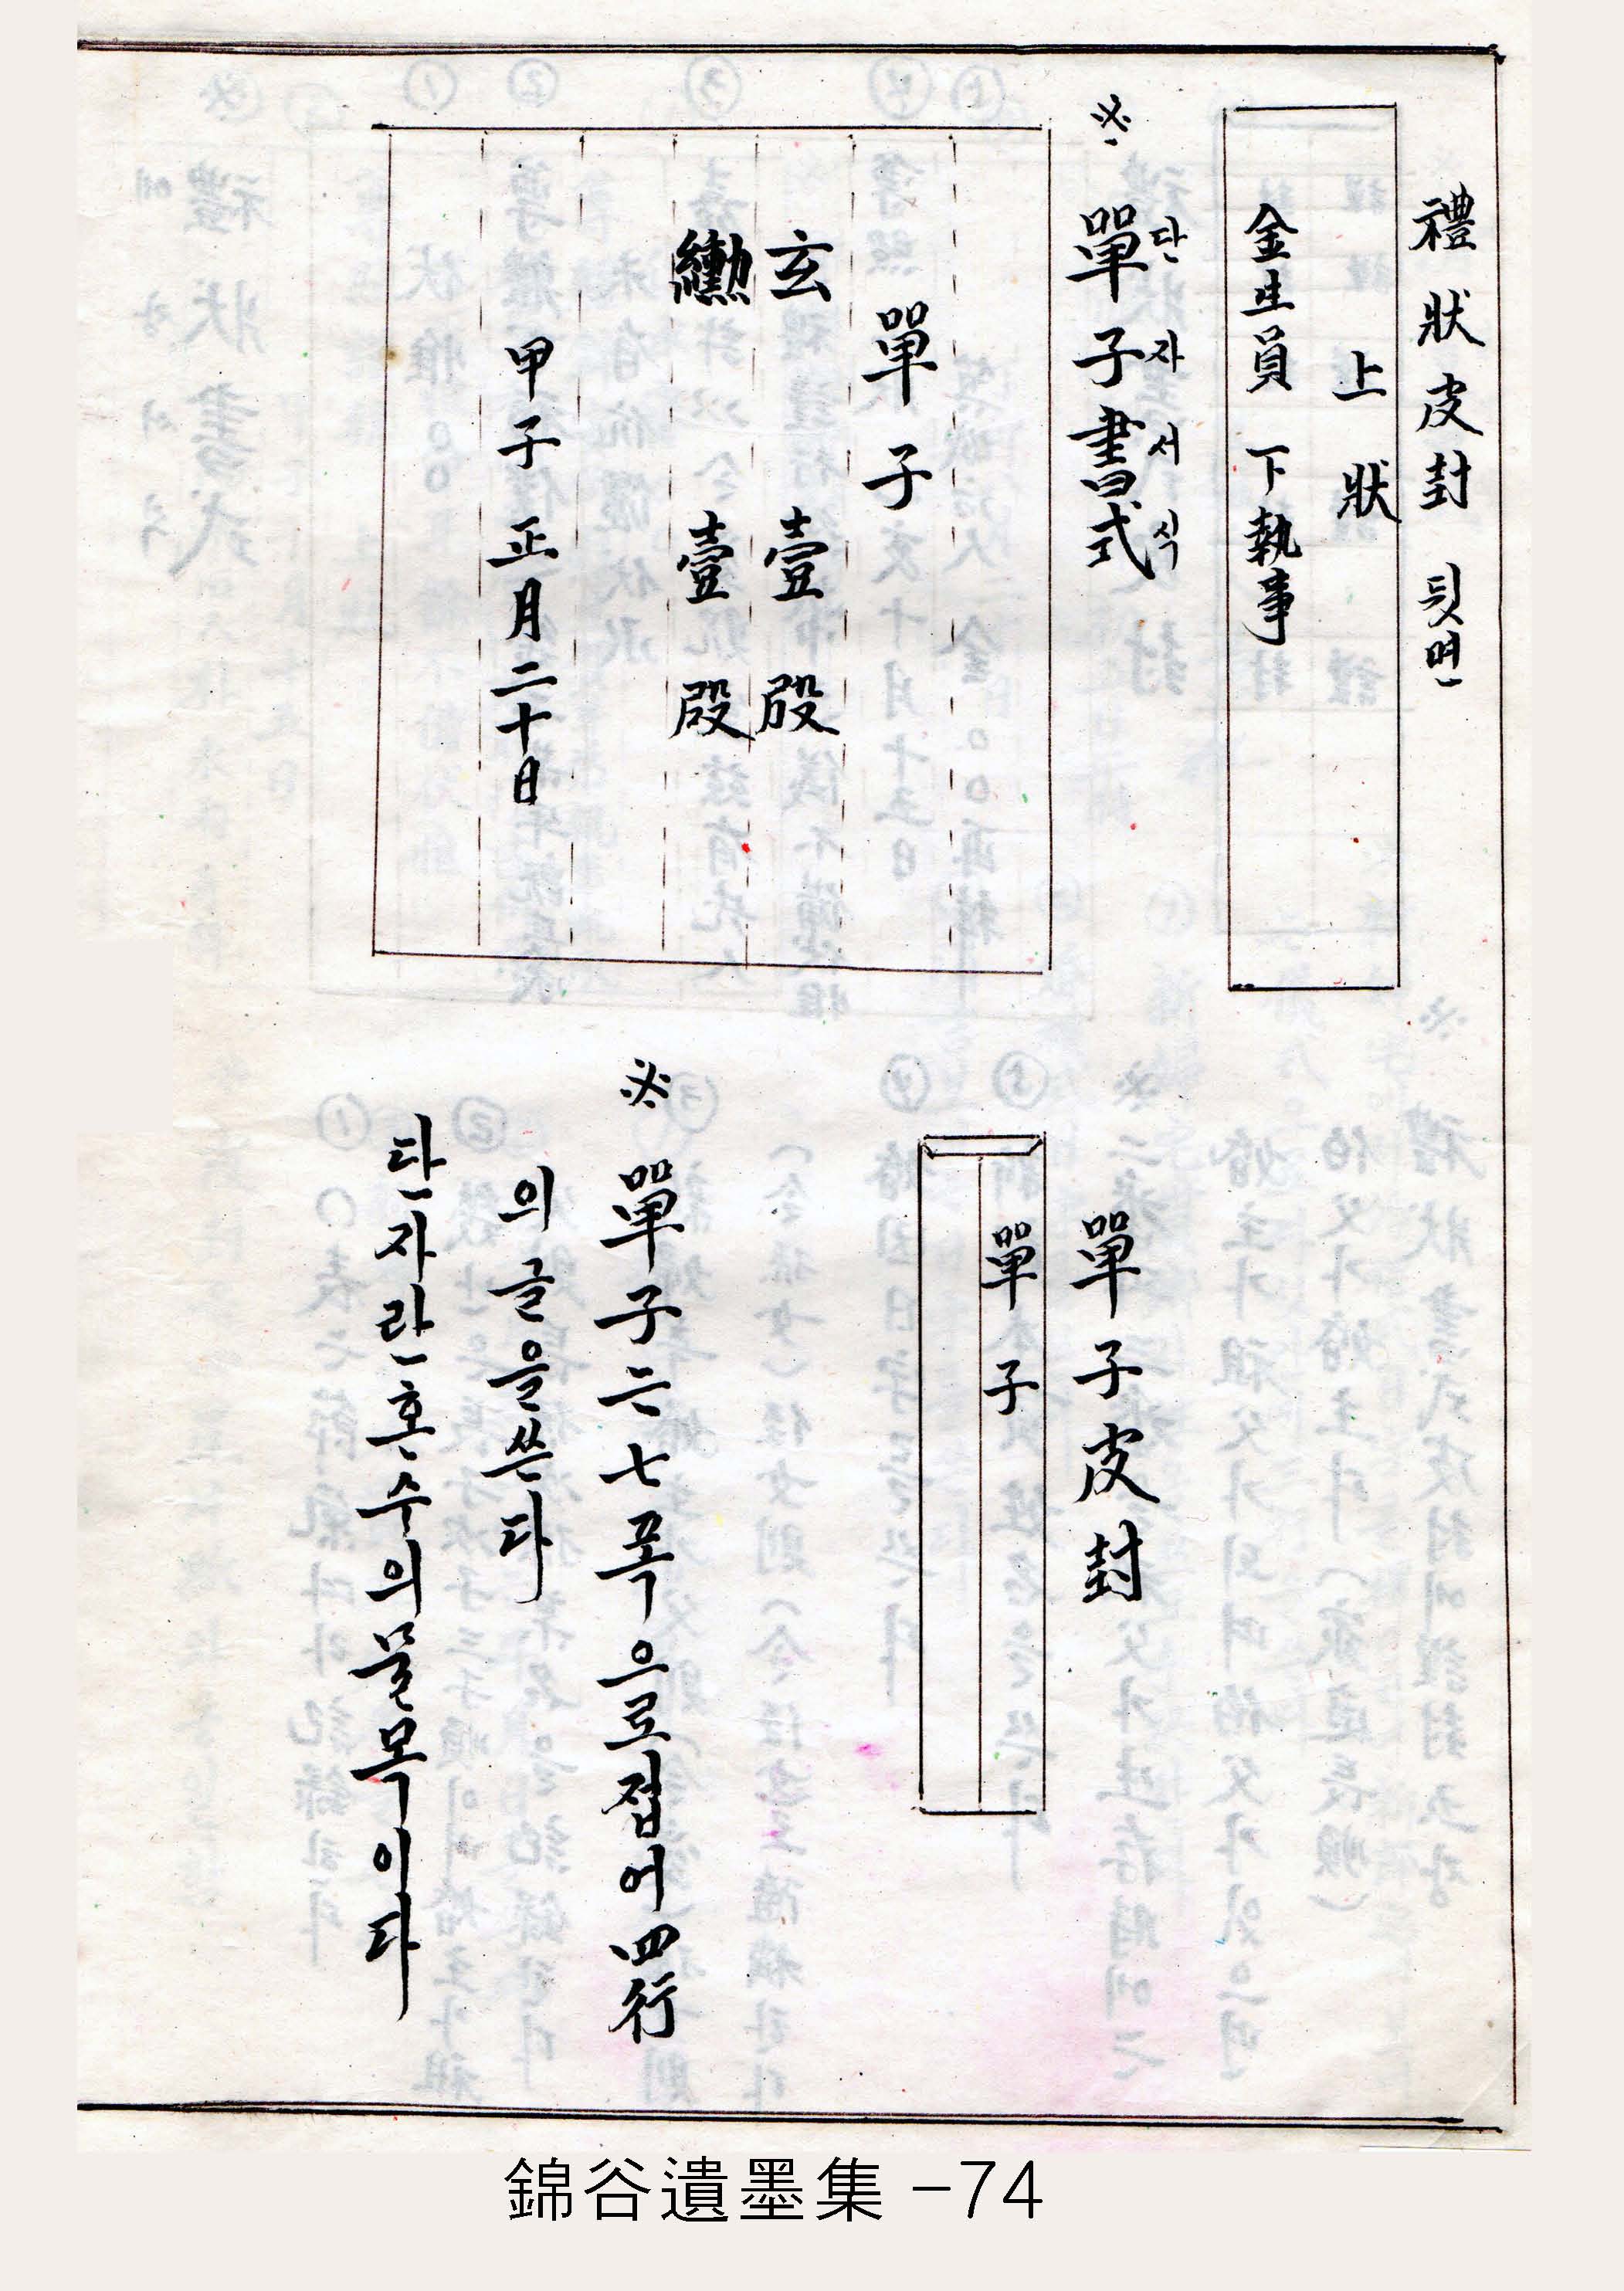 禮狀皮封 뒷면
上狀
金生員 下執事
※ 單子書式
단자서식
單子
玄 壹段
纁 壹段
甲子 正月二十日
單子皮封
單子
※ 單子는七폭으로접어四行
의글을쓴다
단자란혼수의물목이다
錦谷遺墨集 -74